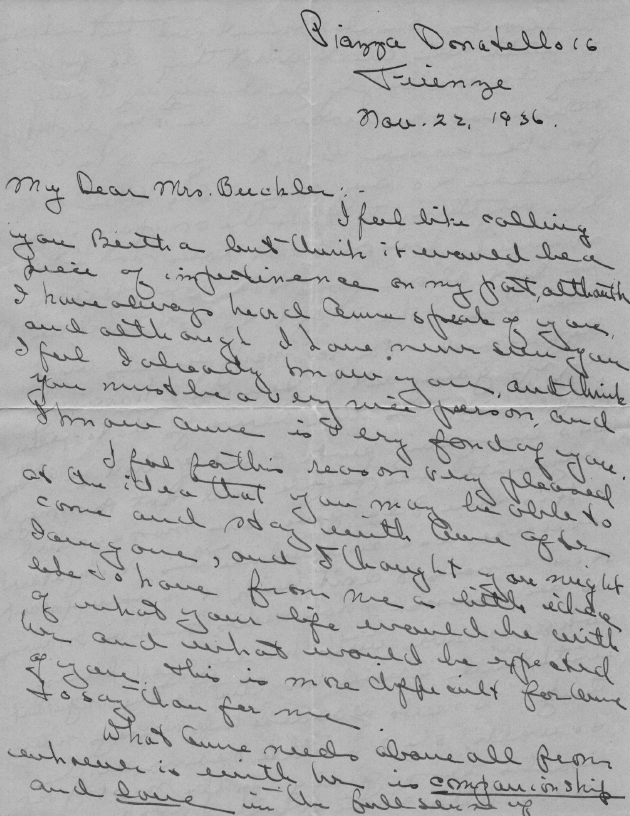 Piazza Donatello 16
Firenze
Nov. 22, 1936.
My Dear Mrs. Buckler:-
I feel like calling
you Bertha but think it would be a
piece of impertinence on my part, although
I have always heard Anne speak of you,
and although I have never seen you
I feel I already know you, and think
you must be a very nice person, and
I know Anne is very fond of you.
I feel for this reason very pleased
at the idea that you may be able to
come and stay with Anne after
I am gone, and I thought you might
like to have from me a little idea
of what your life would be with
her and what would be expected
of you. This is more difficult for Anne
to say than for me
What Anne needs above all from
whoever is with her is companionship
and love in the full sense of